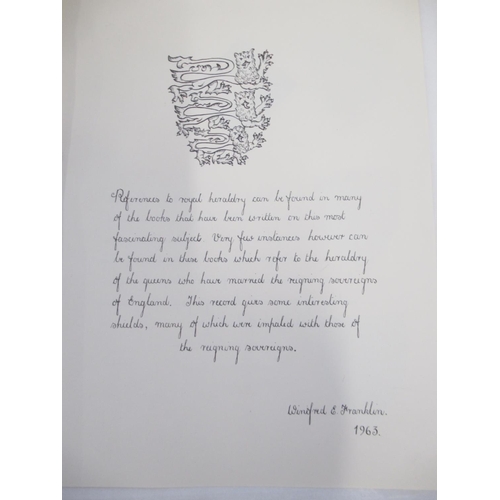 References to royal heraldry can be found in many
of the books that have been written on this most
fascinating subject. Very few instances however can
be found in these books which refer to the heraldry
of the queens who have married the reigning sovereigns
of England. This record gives some interesting
shields, many of which were impaled with those of
the reigning sovereigns.
Winifred E. Franklin.
1963.